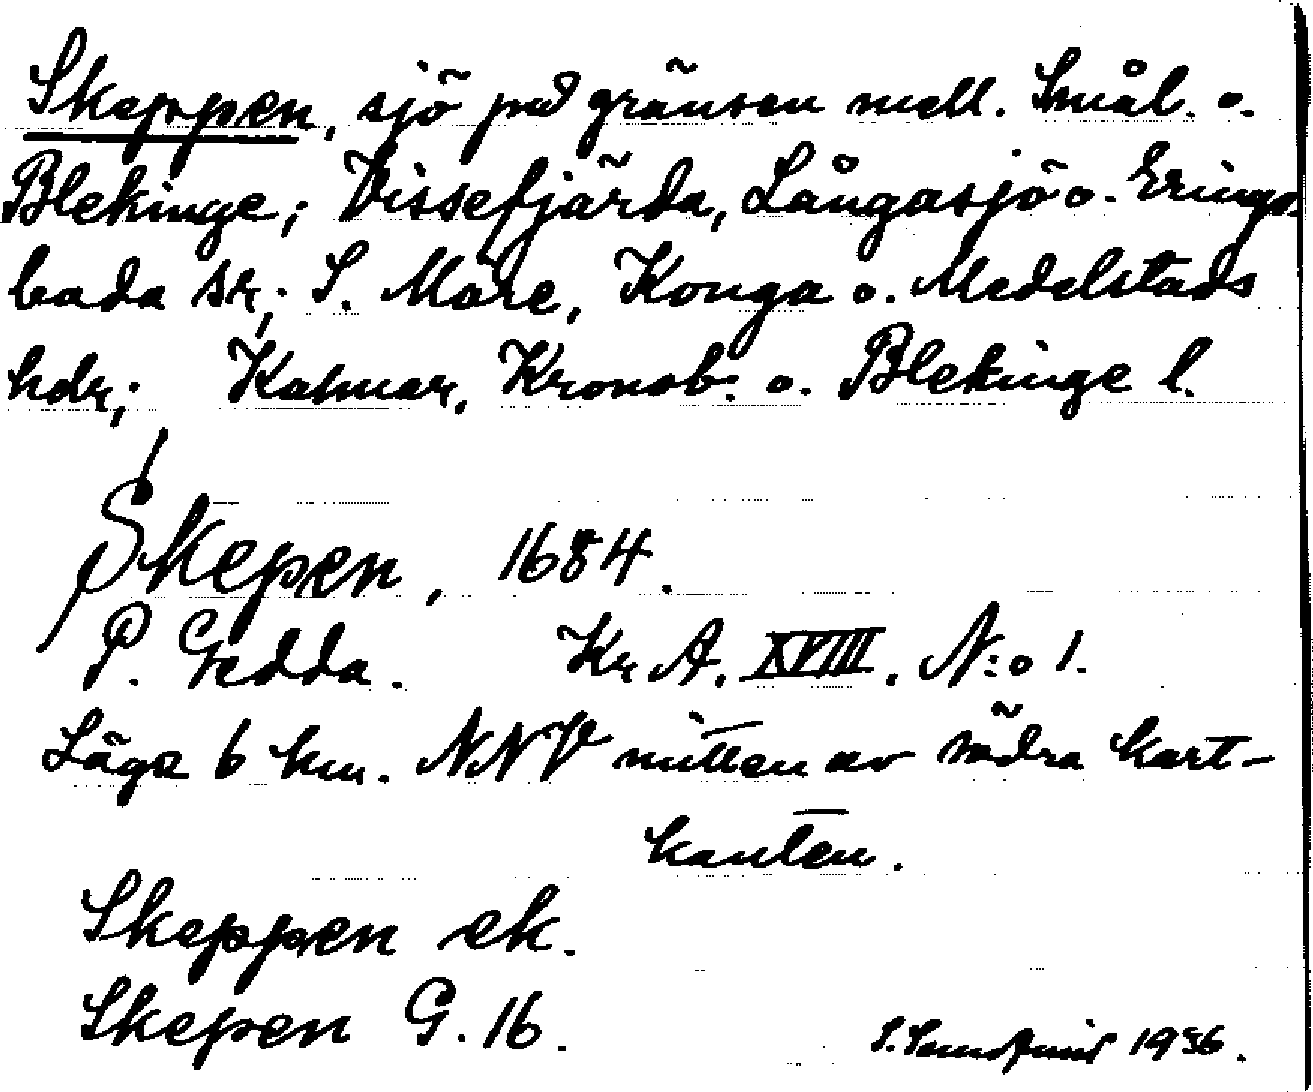 Skeppen, sjö på gränsen mell. Smål. o.
Blekinge; Vissefjärda, Långasjö o. Erings-
boda sk; S. Möre, Konga o. Medelstads
hdr; Kalmar, Kronob. o. Blekinge l.
Skepen, 1684.
P. Gedda. Kr A. XVIII. N:o 1.
Läge 6 km. NNV mitten av södra kart-
kanten.
Skeppen ek.
Skepen G. 16.
1936.